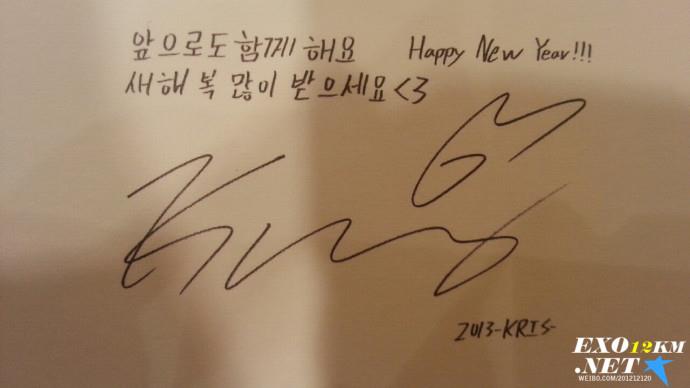 앞으로도 함께 해요 Happy New Year!!!
새해 복 많이 받으세요 <3
2013-KRIS-
EXO12KM
.NET
WEIBO.COM/201212120